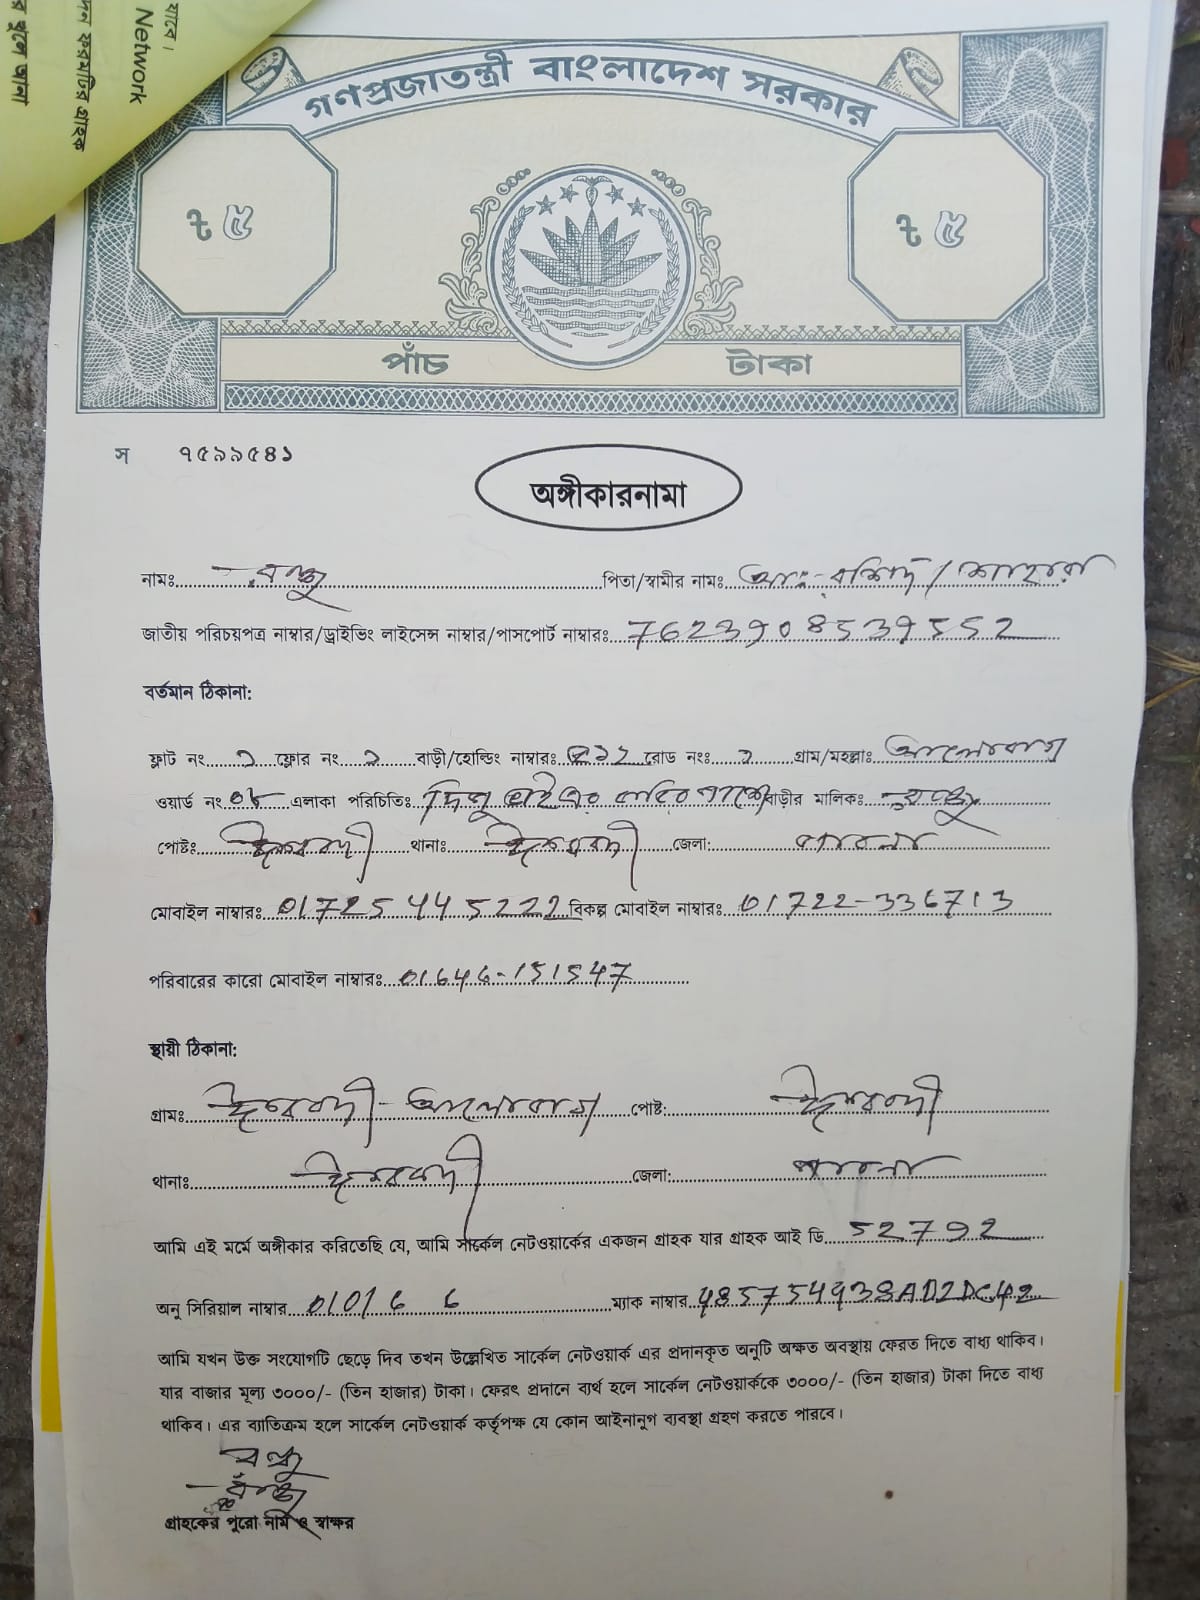 যাবে।
Network
দন ফরমটির গ্রাহক
র খুলে জানা
গণপ্রজাতন্ত্রী বাংলাদেশ সরকার
৳ ৫
৳ ৫
পাঁচ টাকা
স ৭৫৯৯৫৪১
অঙ্গীকারনামা
নামঃ পিতা/স্বামীর নামঃ
জাতীয় পরিচয়পত্র নাম্বার/ড্রাইভিং লাইসেন্স নাম্বার/পাসপোর্ট নাম্বারঃ 7623908539552
বর্তমান ঠিকানা:
ফ্লাট নং ফ্লোর নং বাড়ী/হোল্ডিং নাম্বারঃ রোড নংঃ গ্রাম/মহল্লাঃ আলোবাগ
ওয়ার্ড নং ০৮ এলাকা পরিচিতিঃ বাড়ীর মালিকঃ
পোষ্টঃ ঈশ্বরদী থানাঃ ঈশ্বরদী জেলা: পাবনা
মোবাইল নাম্বারঃ 01725445222 বিকল্প মোবাইল নাম্বারঃ 01722-336713
পরিবারের কারো মোবাইল নাম্বারঃ 01646-151547
স্থায়ী ঠিকানা:
গ্রামঃ ঈশ্বরদী- আলোবাগ পোষ্ট: ঈশ্বরদী
থানাঃ ঈশ্বরদী জেলা: পাবনা
আমি এই মর্মে অঙ্গীকার করিতেছি যে, আমি সার্কেল নেটওয়ার্কের একজন গ্রাহক যার গ্রাহক আই ডি 52792
অনু সিরিয়াল নাম্বার 010166 ম্যাক নাম্বার
আমি যখন উক্ত সংযোগটি ছেড়ে দিব তখন উল্লেখিত সার্কেল নেটওয়ার্ক এর প্রদানকৃত অনুটি অক্ষত অবস্থায় ফেরত দিতে বাধ্য থাকিব।
যার বাজার মূল্য ৩০০০/- (তিন হাজার) টাকা। ফেরৎ প্রদানে ব্যর্থ হলে সার্কেল নেটওয়ার্ককে ৩০০০/- (তিন হাজার) টাকা দিতে বাধ্য
থাকিব। এর ব্যাতিক্রম হলে সার্কেল নেটওয়ার্ক কর্তৃপক্ষ যে কোন আইনানুগ ব্যবস্থা গ্রহণ করতে পারবে।
গ্রাহকের পুরো নাম ও স্বাক্ষর